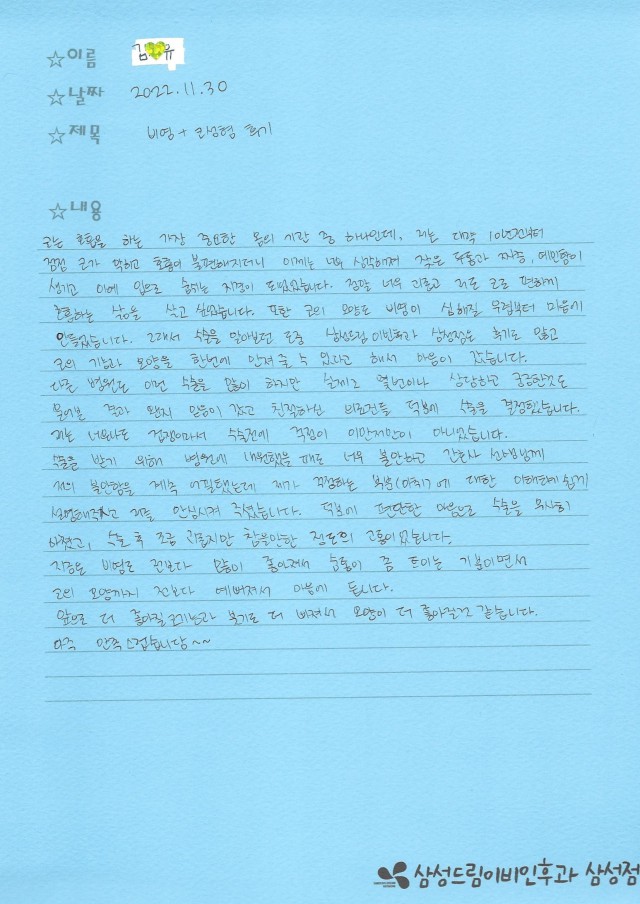 ☆이름 김 유
☆날짜 2022.11.30
☆제목 비염 + 코성형 후기
☆내용
코는 호흡을 하는 가장 중요한 몸의 기관 중 하나인데, 저는 대략 10년전부터
점점 코가 막히고 호흡이 불편해지더니 이제는 너무 심각해져 잦은 두통과 짜증, 예민함이
생기고 이에 입으로 숨쉬는 지경이 되었었습니다. 정말 너무 괴롭고 저도 코로 편하게
호흡하는 삶을 살고 싶었습니다. 또한 코의 모양도 비염이 심해질 무렵부터 마음에
안들었습니다. 그래서 수술을 알아보던 도중 삼성드림이비인후과 삼성점은 후기도 많고
코의 기능과 모양을 한번에 만져줄 수 있다고 해서 마음이 갔습니다.
다른 병원도 이런 수술을 많이 하지만 실제로 몇번이나 상담하고 궁금한것도
물어본 결과 왠지 믿음이 갔고 친절하신 의료진들 덕분에 수술을 결정했습니다.
저는 너무나도 겁쟁이라서 수술전에 걱정이 이만저만이 아니었습니다.
수술을 받기 위해 병원에 내원했을 때도 너무 불안하고 간호사 선생님께
저의 불안함을 계속 어필했는데 제가 걱정하는 부분(마취)에 대한 이해되게 쉽게
설명해주시고 저를 안심시켜 주셨습니다. 덕분에 편안한 마음으로 수술을 무사히
마쳤고, 수술 후 조금 괴롭지만 참을만한 정도의 고통이었습니다.
지금은 비염도 전보다 많이 좋아져서 숨통이 좀 트이는 기분이면서
코의 모양까지 전보다 예뻐져서 마음에 듭니다.
앞으로 더 좋아질 코기능과 붓기도 더 빠져서 모양이 더 좋아질것 같습니다.
아주 만족스럽습니당~~
삼성드림이비인후과 삼성점